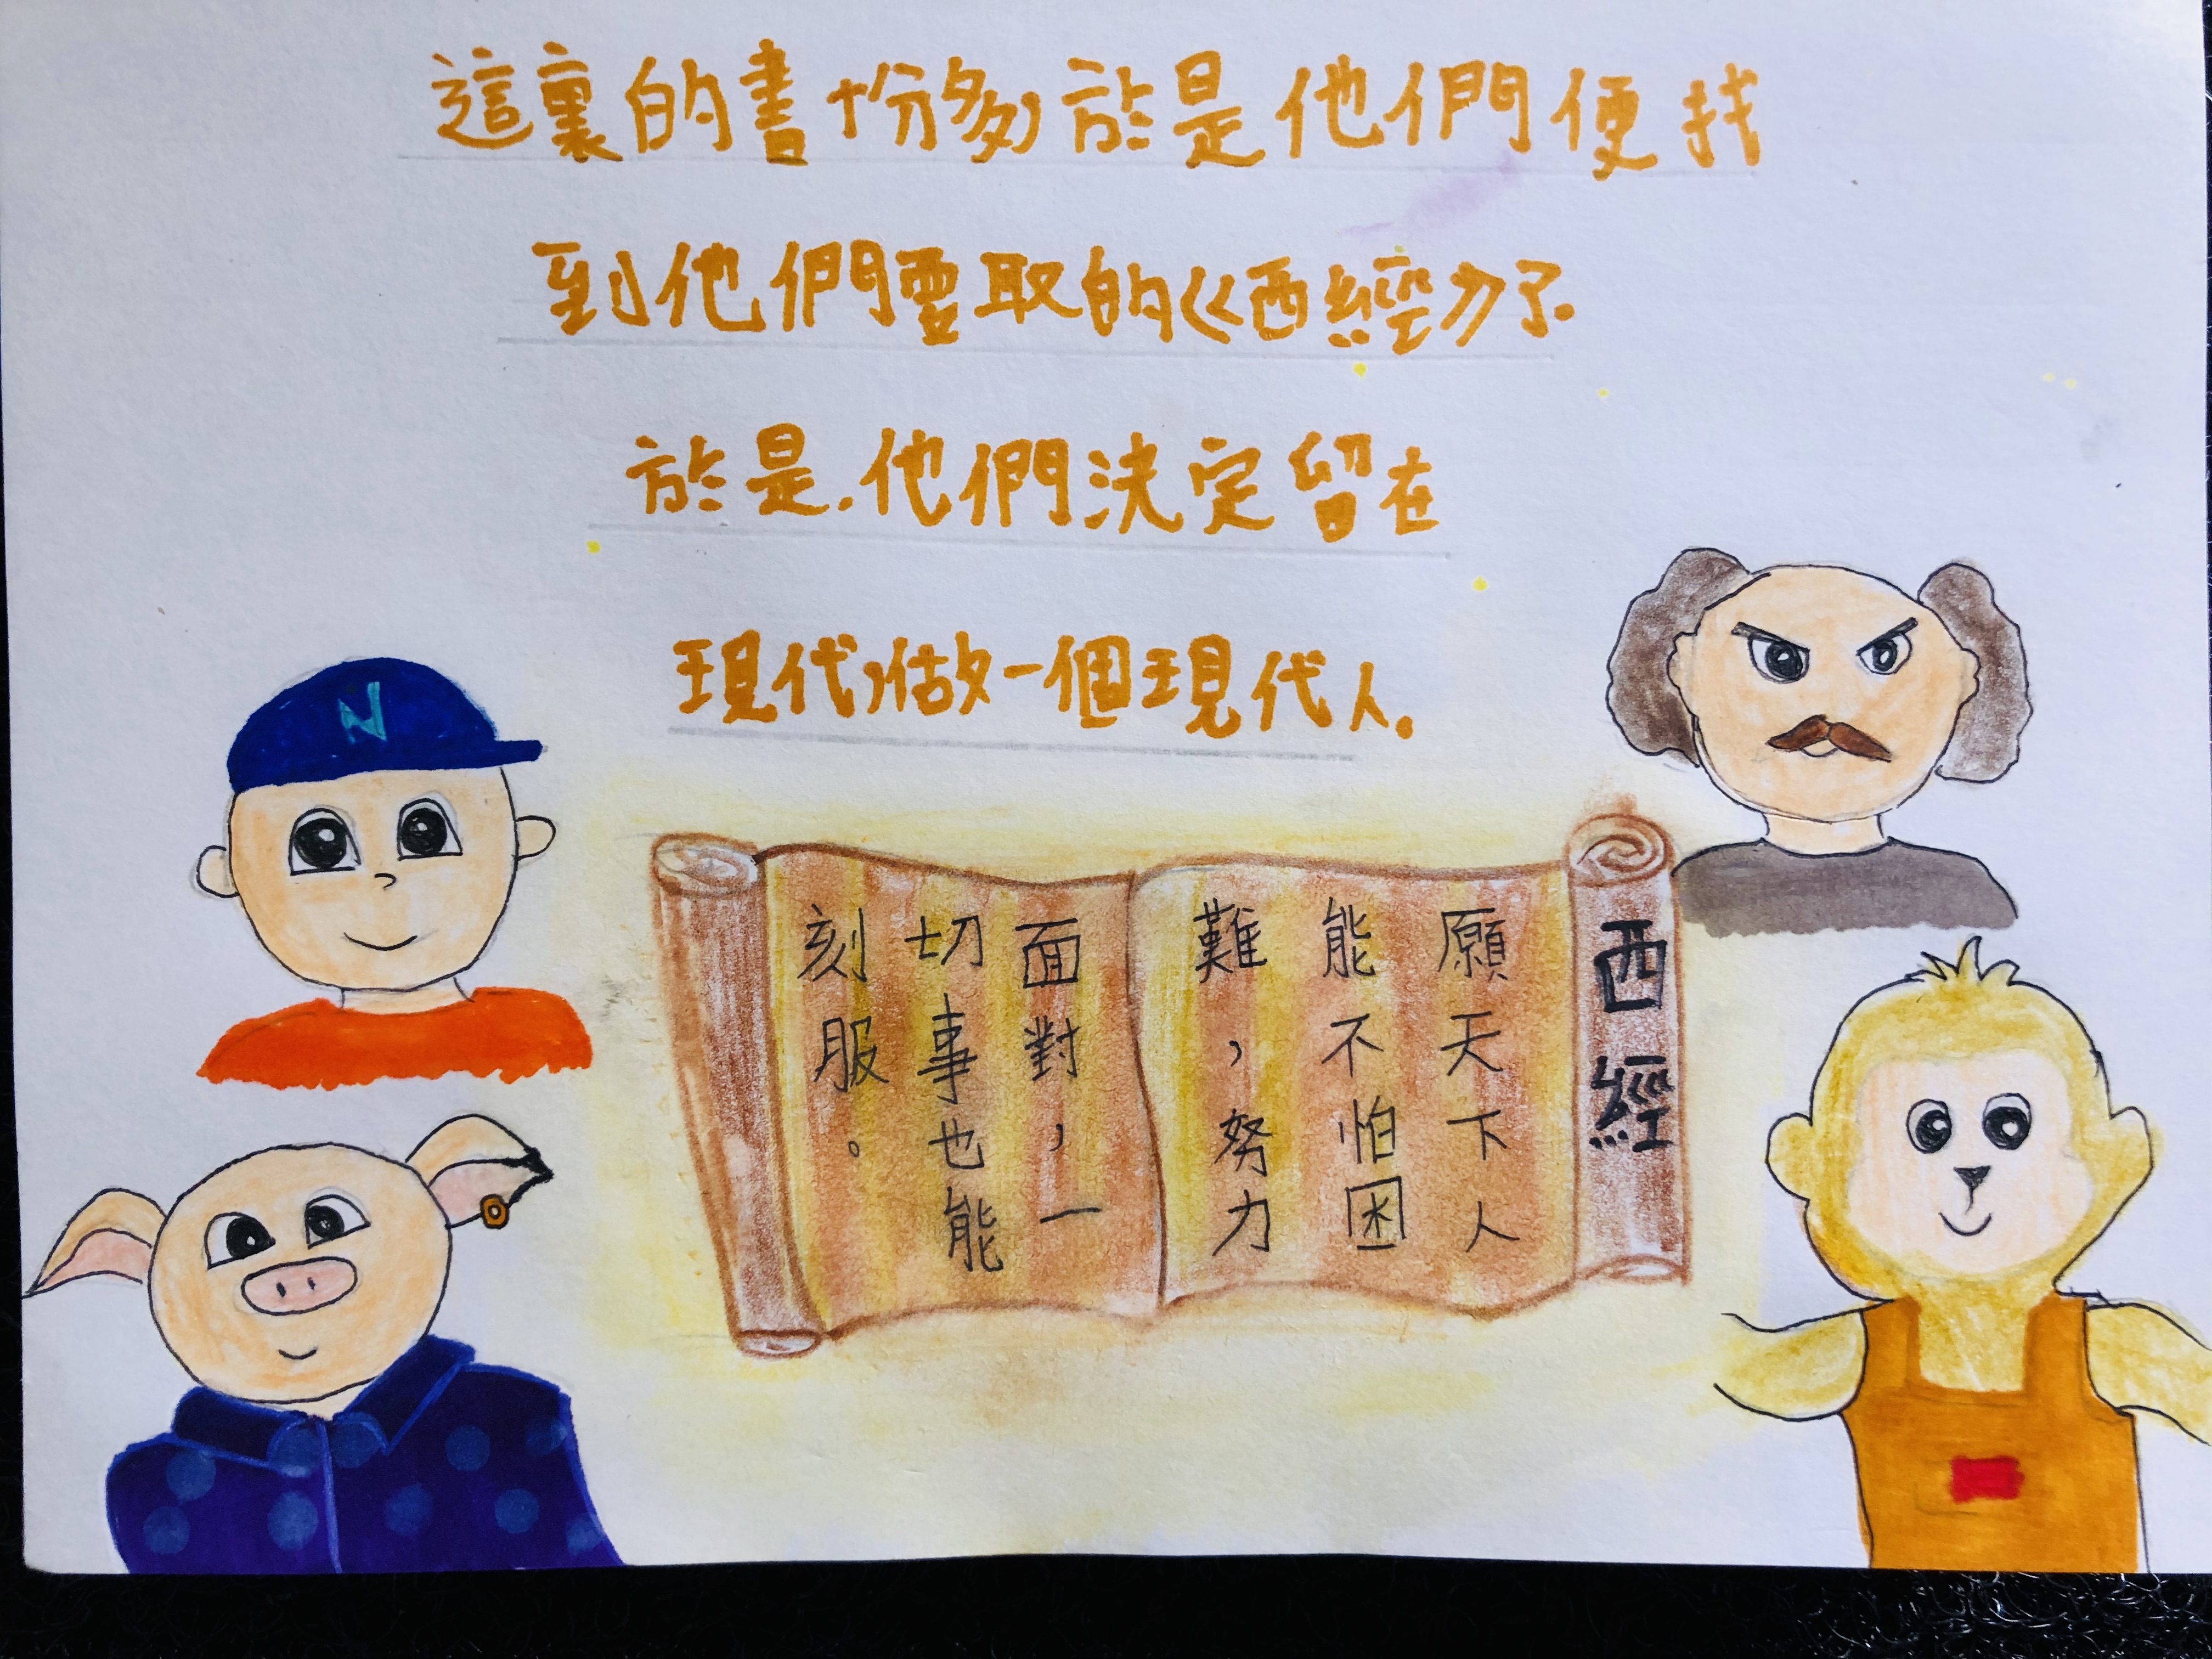 這裏的書十份多於是他們便找
到他們要取的《西經》了.
於是.他們決定留在
現代,做一個現代人.
N
西經
願天下人
能不怕困
難,努力
面對,一
切事也能
刻服。